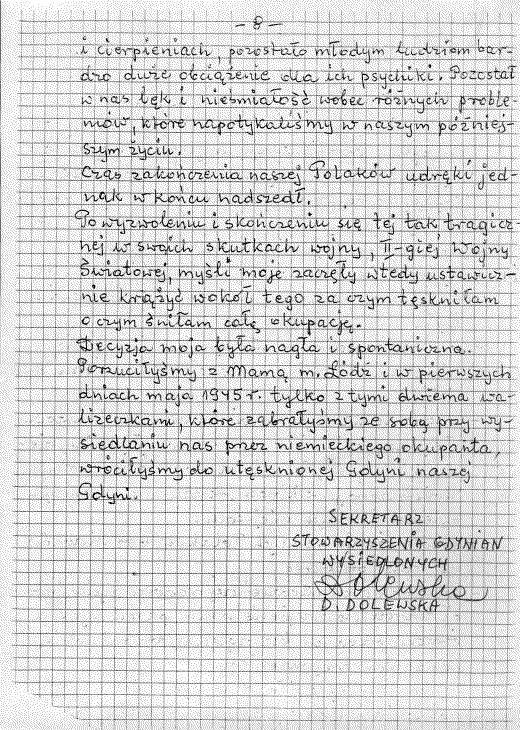 - 8 -
i cierpieniach, pozostało młodym ludziom bar-
dzo duże obciążenie dla ich psychiki. Pozostał
w nas lęk i nieśmiałość wobec różnych proble-
mów, które napotykaliśmy w naszym później-
szym życiu.
Czas zakończenia naszej Polaków udręki jed-
nak w końcu nadszedł.
Po wyzwoleniu i skończeniu się tej tak tragicz-
nej w swoich skutkach wojny, II-giej Wojny
Światowej, myśli moje zaczęły wtedy ustawicz-
nie krążyć wokół tego za czym tęskniłam
o czym śniłam całą okupację.
Decyzja moja była nagła i spontaniczna.
Porzuciłyśmy z Mamą m. Łódź i w pierwszych
dniach maja 1945 r. tylko z tymi dwiema wa-
lizeczkami, które zabrałyśmy ze sobą przy wy-
siedlaniu nas przez niemieckiego okupanta,
wróciłyśmy do utęsknionej Gdyni naszej
Gdyni.
SEKRETARZ
STOWARZYSZENIA GDYNIAN
WYSIEDLONYCH
Dolewska
D. DOLEWSKA